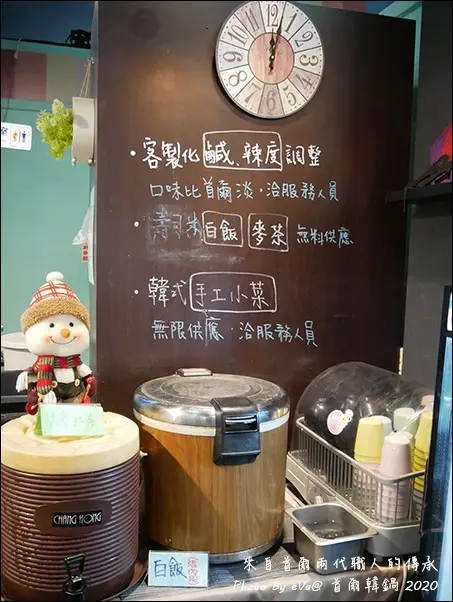 ・客製化鹹、辣度調整
口味比首爾淡・洽服務人員
・壽司米白飯 麥茶 無料供應
・韓式手工小菜
無限供應・洽服務人員
CHANG HONG
白飯
來自首爾兩代職人的傳承
Photo by eva@ 首爾韓鍋 2020